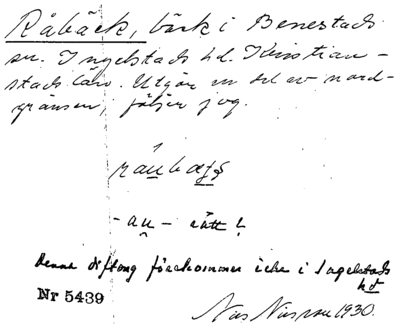 Råbäck, bäck i Benestads
sn. Ingelstads hd. Kristian-
stads län. Utgör en del av nord-
gränsen, följer jvg.
råu̯bæ
-au- rätt!
Denna diftong förekommer icke i Ingelstads
hd
Nr 5439
Nils Nilsson 1930.